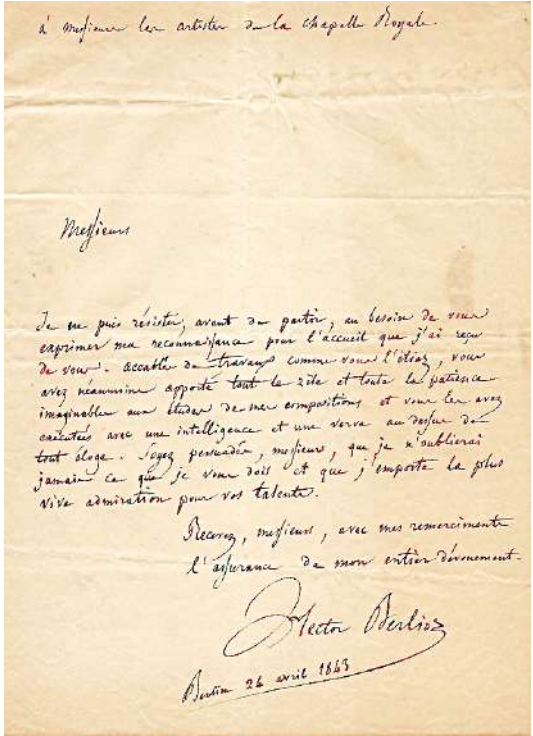 à Messieurs les artistes de la chapelle Royale.
Messieurs
Je ne puis résister, avant de partir, au besoin de vous
exprimer ma reconnaissance pour l'accueil que j'ai reçu
de vous. Accablés de travaux comme vous l'étiez, vous
avez néanmoins apporté tout le zèle et toute la patience
imaginables aux études de mes compositions et vous les avez
exécutées avec une intelligence et une verve au dessus de
tout éloge. Soyez persuadés, messieurs, que je n'oublierai
jamais ce que je vous dois et que j'emporte la plus
vive admiration pour vos talents.
Recevez, messieurs, avec mes remerciments
l'assurance de mon entier dévouement.
Hector Berlioz
Berlin 24 avril 1843